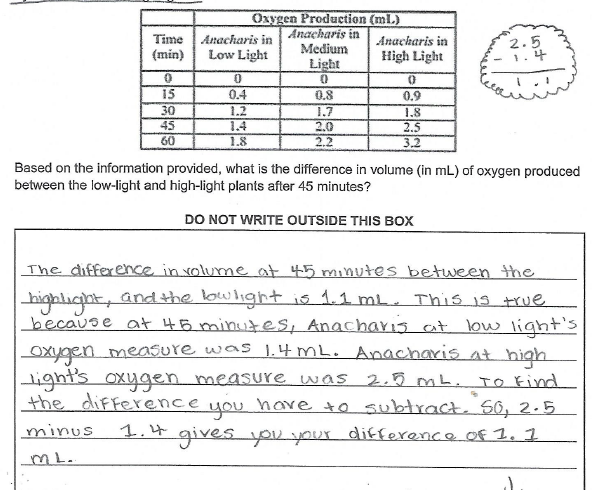 Oxygen Production (mL)
Time (min) Anacharis in Low Light Anacharis in Medium Light Anacharis in High Light
0 0 0 0
15 0.4 0.8 0.9
30 1.2 1.7 1.8
45 1.4 2.0 2.5
60 1.8 2.2 3.2
2.5
- 1.4
1.1
Based on the information provided, what is the difference in volume (in mL) of oxygen produced
between the low-light and high-light plants after 45 minutes?
DO NOT WRITE OUTSIDE THIS BOX
The difference in volume at 45 minutes between the
highlight, and the lowlight is 1.1 mL. This is true
because at 45 minutes, Anacharis at low light's
oxygen measure was 1.4 mL. Anacharis at high
light's oxygen measure was 2.5 mL. To find
the difference you have to subtract. So, 2.5
minus 1.4 gives you your difference of 1.1
mL.